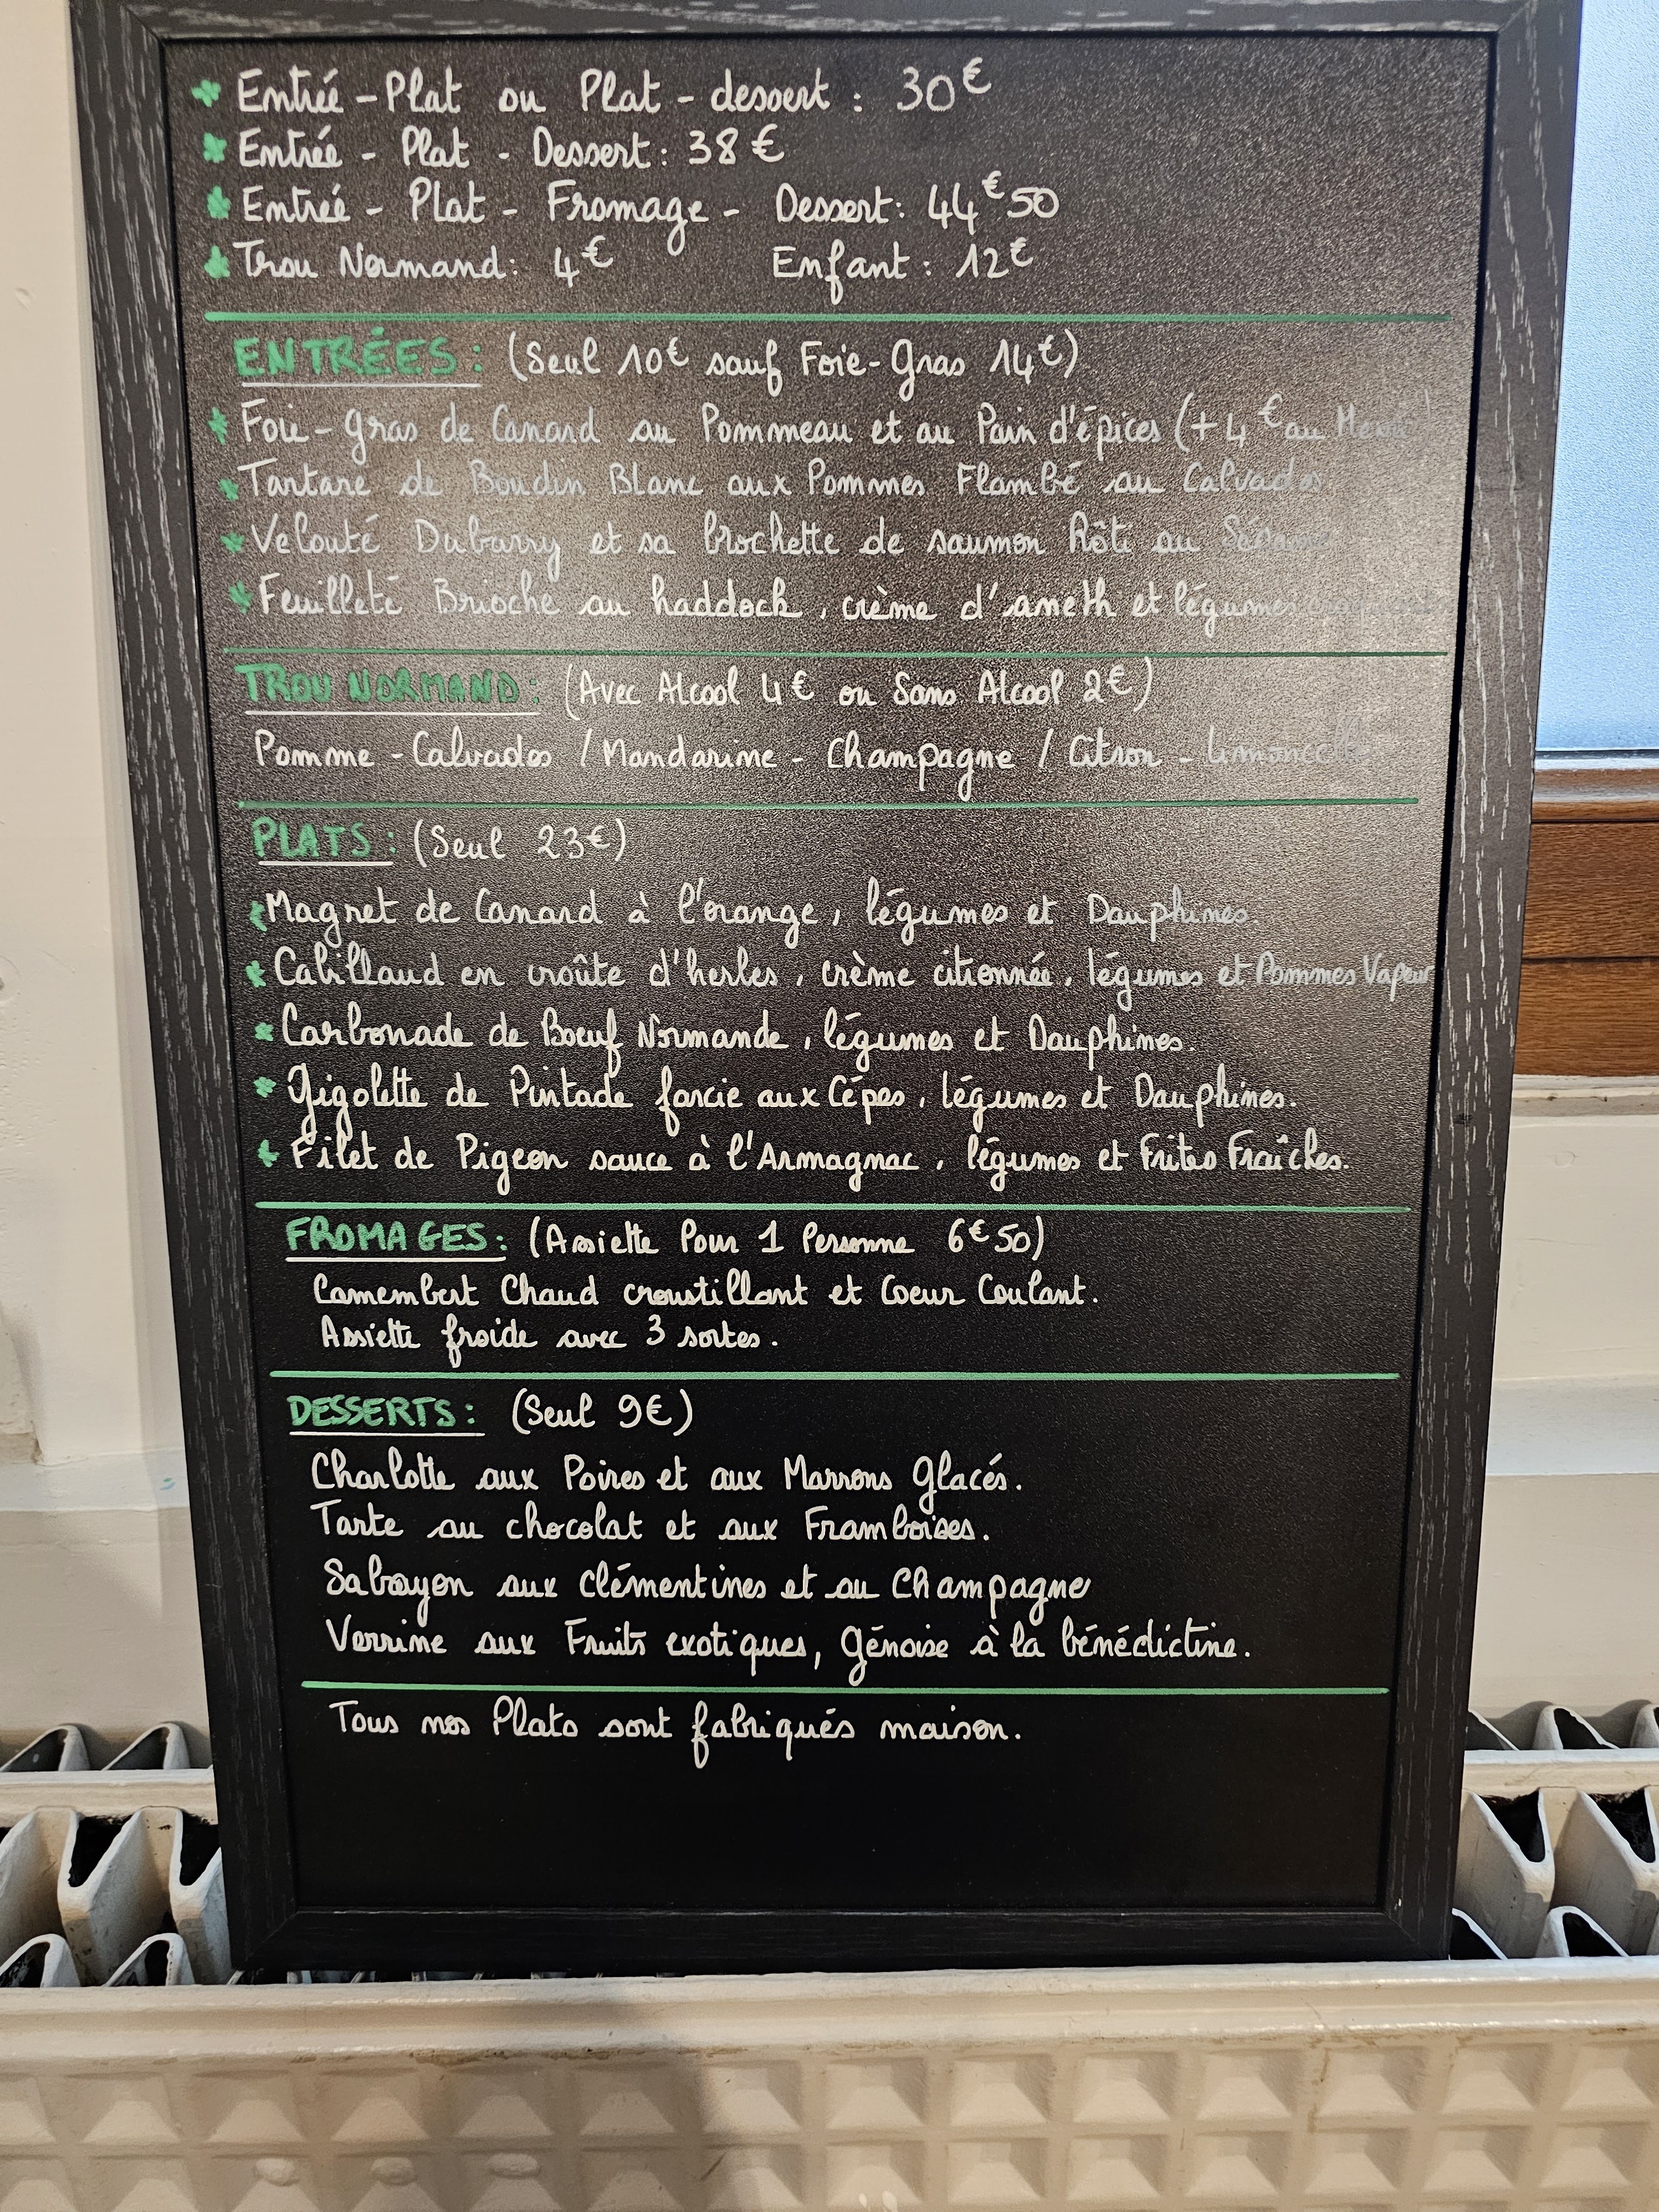 Entrée - Plat ou Plat - dessert : 30€
Entrée - Plat - Dessert : 38€
Entrée - Plat - Fromage - Dessert : 44€50
Trou Normand : 4€ Enfant : 12€
ENTRÉES : (Seul 10€ sauf Foie-Gras 14€)
Foie-gras de Canard au Pommeau et au Pain d'épices (+4€ au Menu)
Tartare de Boudin Blanc aux Pommes Flambé au Calvados
Velouté Dubarry et sa brochette de saumon Rôti au Sésame
Feuilleté Brioché au haddock, crème d'aneth et légumes
TROU NORMAND : (Avec Alcool 4€ ou Sans Alcool 2€)
Pomme - Calvados / Mandarine - Champagne / Citron - Limoncello
PLATS : (Seul 23€)
Magret de Canard à l'orange, légumes et Dauphines
Cabillaud en croûte d'herbes, crème citronnée, légumes et Pommes Vapeur
Carbonade de Boeuf Normande, légumes et Dauphines.
Gigolette de Pintade farcie aux Cèpes, légumes et Dauphines.
Filet de Pigeon sauce à l'Armagnac, légumes et Frites Fraîches.
FROMAGES : (Assiette Pour 1 Personne 6€50)
Camembert Chaud croustillant et Coeur Coulant.
Assiette froide avec 3 sortes.
DESSERTS : (Seul 9€)
Charlotte aux Poires et aux Marrons Glacés.
Tarte au chocolat et aux Framboises.
Sabayon aux clémentines et au Champagne
Verrine aux Fruits exotiques, Génoise à la bénédictine.
Tous nos Plats sont fabriqués maison.